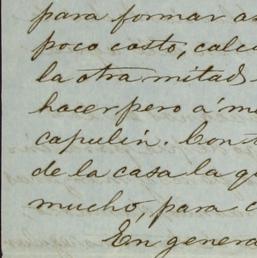 para formar as
poco costo, calcu
la otra mitad
hacer pero á m
capulin. Cont
de la casa la q
mucho, para c
En genera